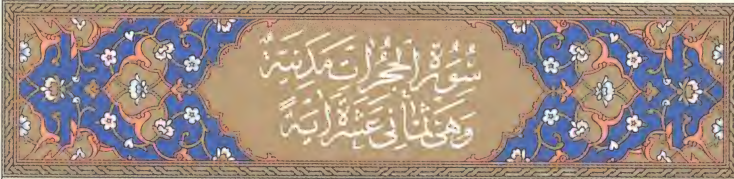 سُورَةُ الْحُجُرَاتِ مَدَنِيَّةٌ
وَهِيَ ثَمَانِيَ عَشْرَةَ اٰيَةً